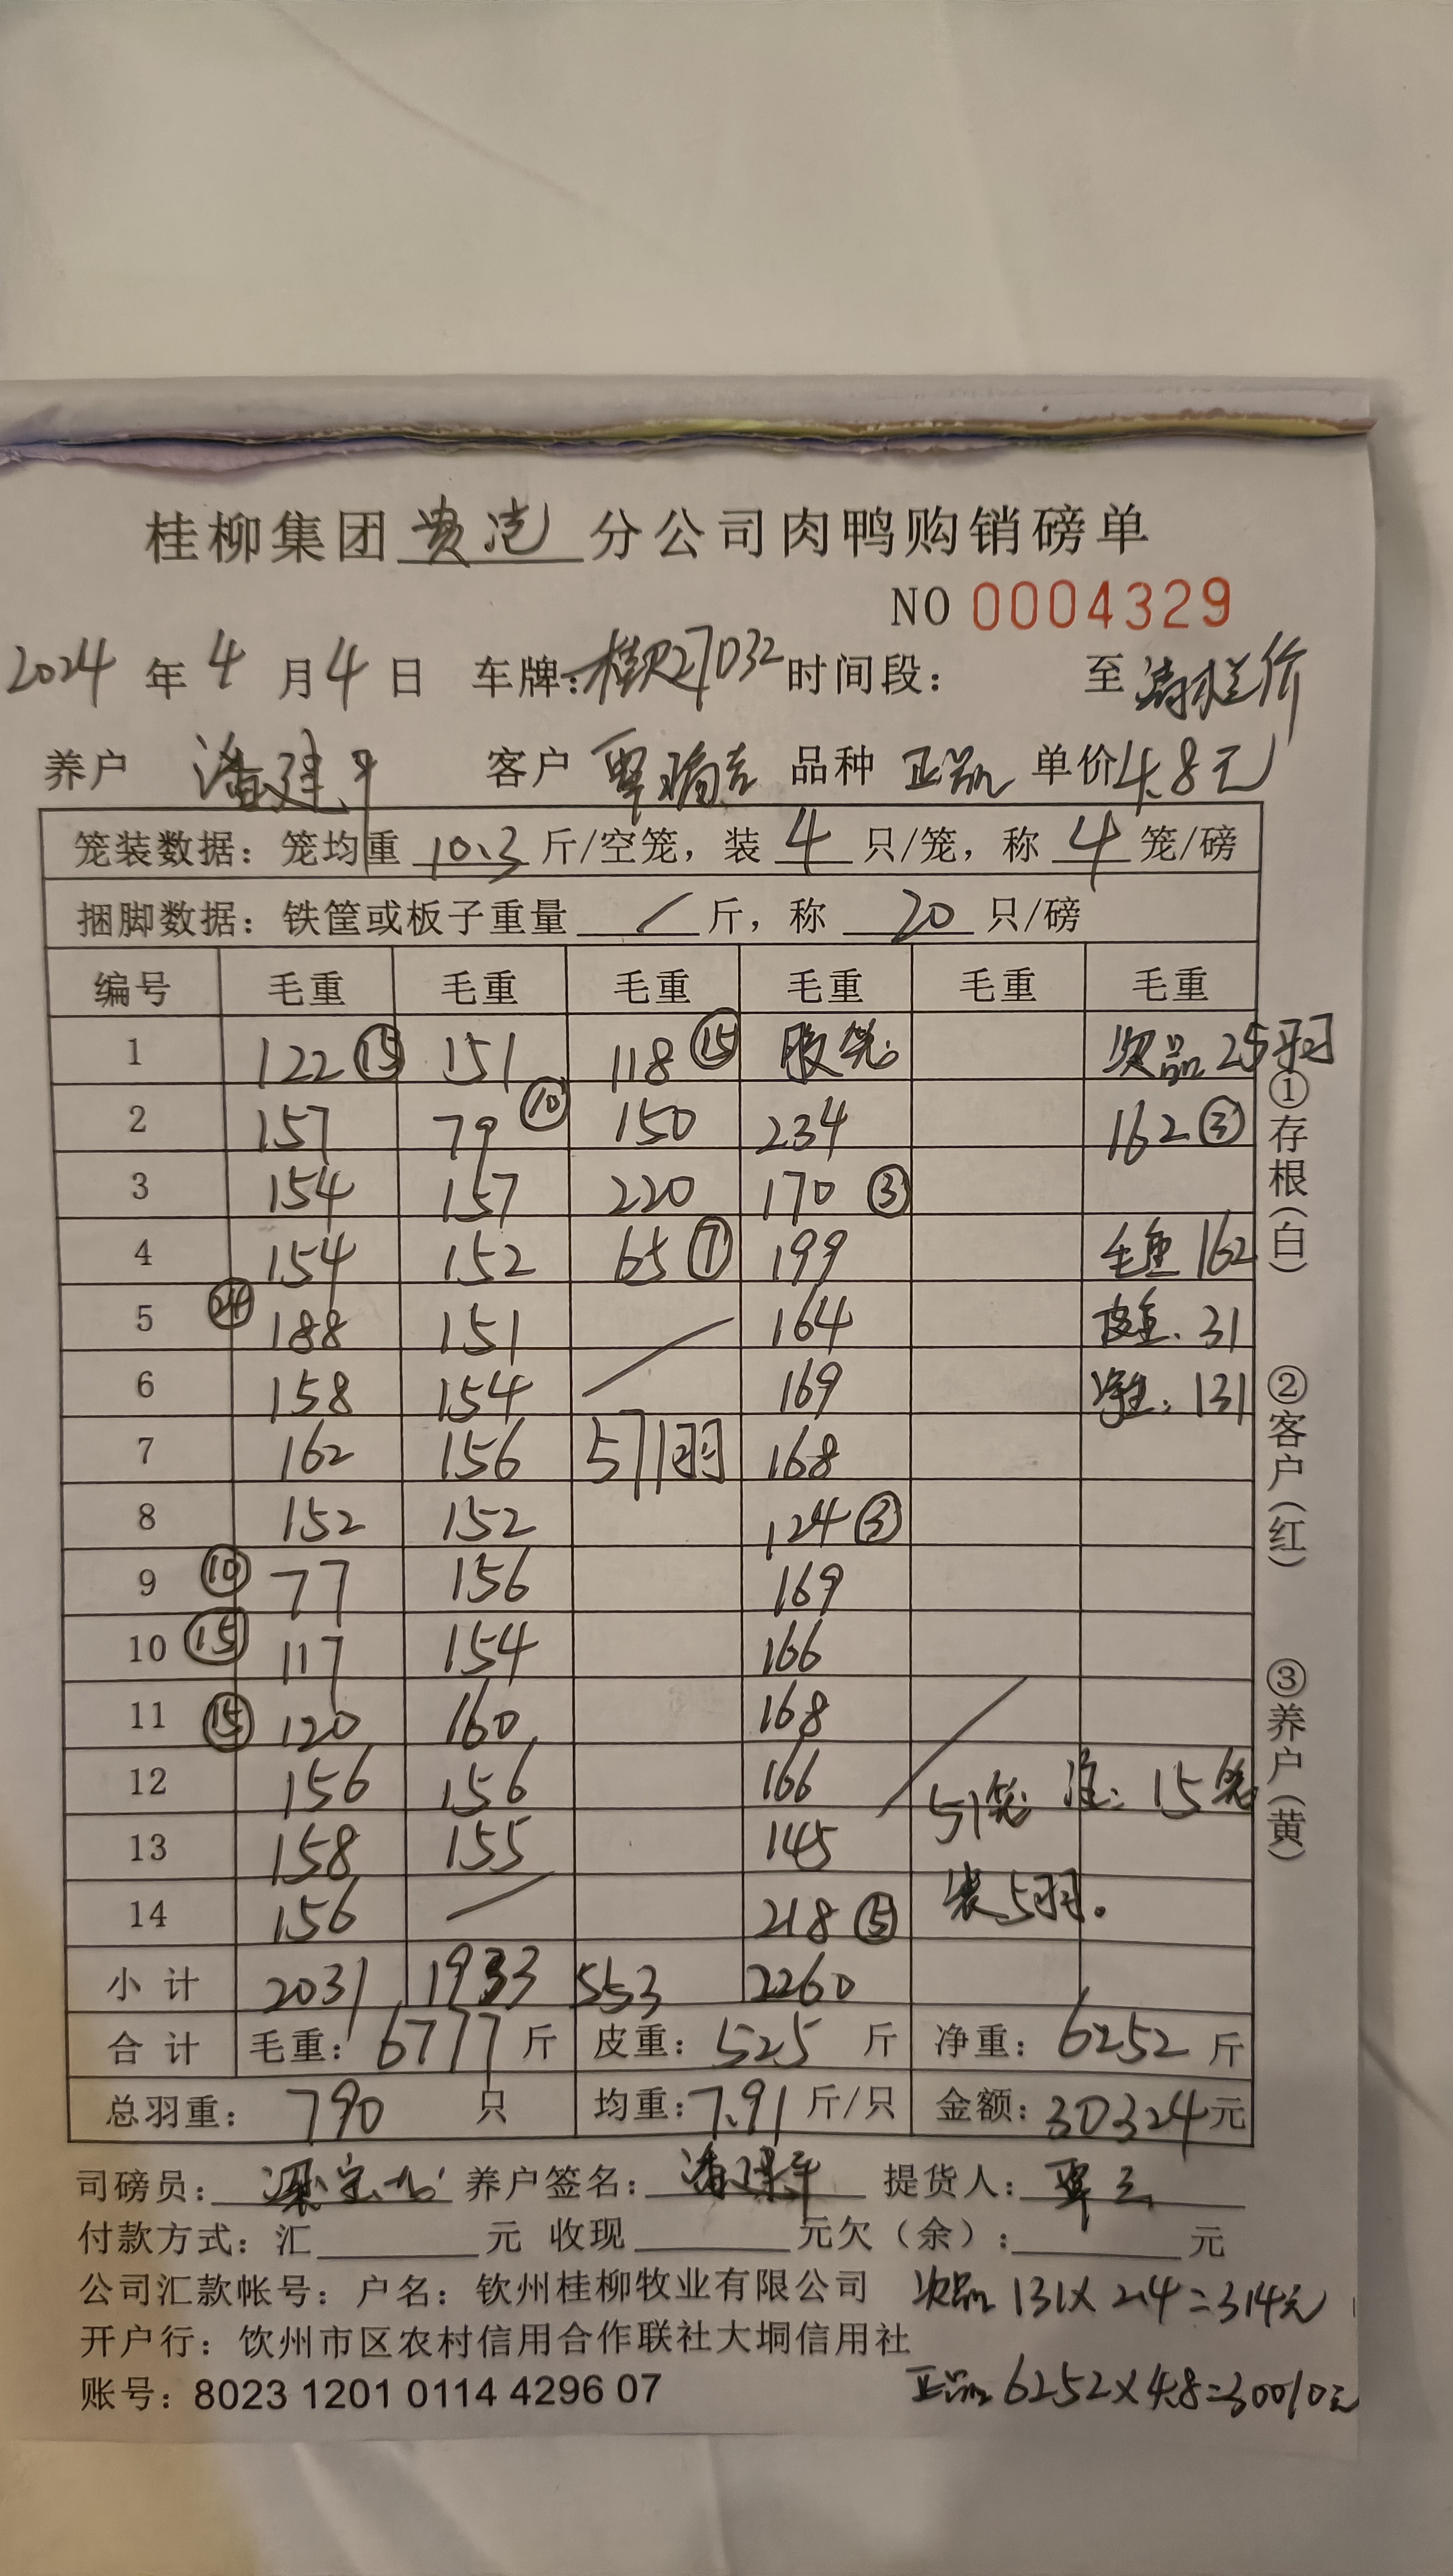 桂柳集团 贵港 分公司肉鸭购销磅单
NO 0004329
2024 年 4 月 4 日 车牌:桂R27032 时间段: 至 满栏价
养户 潘建平 客户 覃 品种 正品 单价 4.8元
笼装数据: 笼均重 10.3 斤/空笼, 装 4 只/笼, 称 4 笼/磅
捆脚数据: 铁筐或板子重量 / 斤, 称 20 只/磅
编号 毛重 毛重 毛重 毛重 毛重 毛重
1 122 ⑮ 151 118 ⑮ 胶笼: 次品 25羽
2 157 79 ⑩ 150 234 162 ③
3 154 157 220 170 ③
4 154 152 65 ⑦ 199 毛重 162
5 ㉔ 188 151 164 皮重: 31
6 158 154 169 净重: 131
7 162 156 571羽 168
8 152 152 124 ③
9 ⑩ 77 156 169
10 ⑮ 117 154 166
11 ⑮ 120 160 168
12 156 156 166 51笼 注: 15笼
13 158 155 145
14 156 218 ⑤ 装5羽。
小计 2031 1933 553 2260
合计 毛重: 6777 斤 皮重: 525 斤 净重: 6252 斤
总羽重: 790 只 均重: 7.91 斤/只 金额: 30324 元
司磅员: 养户签名: 潘建平 提货人: 覃
付款方式: 汇 元 收现 元欠（余）: 元
公司汇款帐号: 户名: 钦州桂柳牧业有限公司 次品 131×2.4=314元
开户行: 饮州市区农村信用合作联社大垌信用社
账号: 8023 1201 0114 4296 07 正品 6252×4.8=30010元
①存根(白)
②客户(红)
③养户(黄)